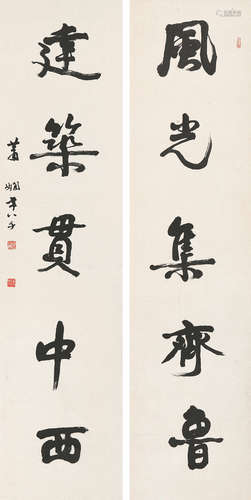 風光集齊魯
建築貫中西
蕭嫻年八十